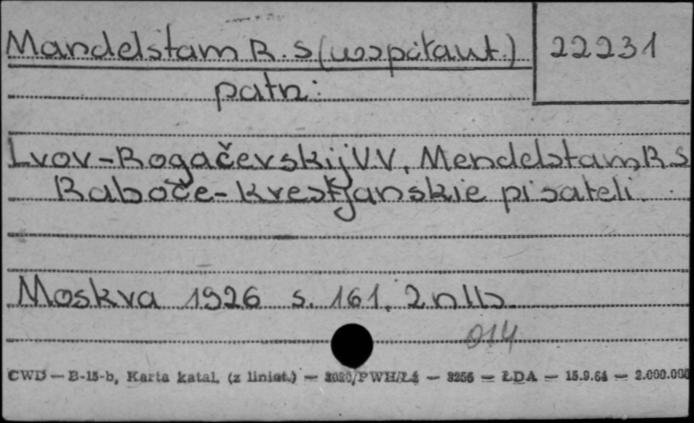 Mandelstam R.S (współaut.) 22231
patrz:
Lvov-Rogačevskij V.V, Mendelstam R.S
Raboče-krestjanskie pisateli.
Moskva 1926 s. 161, 2 nlb.
014
CWD — B-15-b, Karta katal. (z liniat.) — 3020/PWH/Ł4 — 3256 — ŁDA — 15.9.64 — 2.000.000